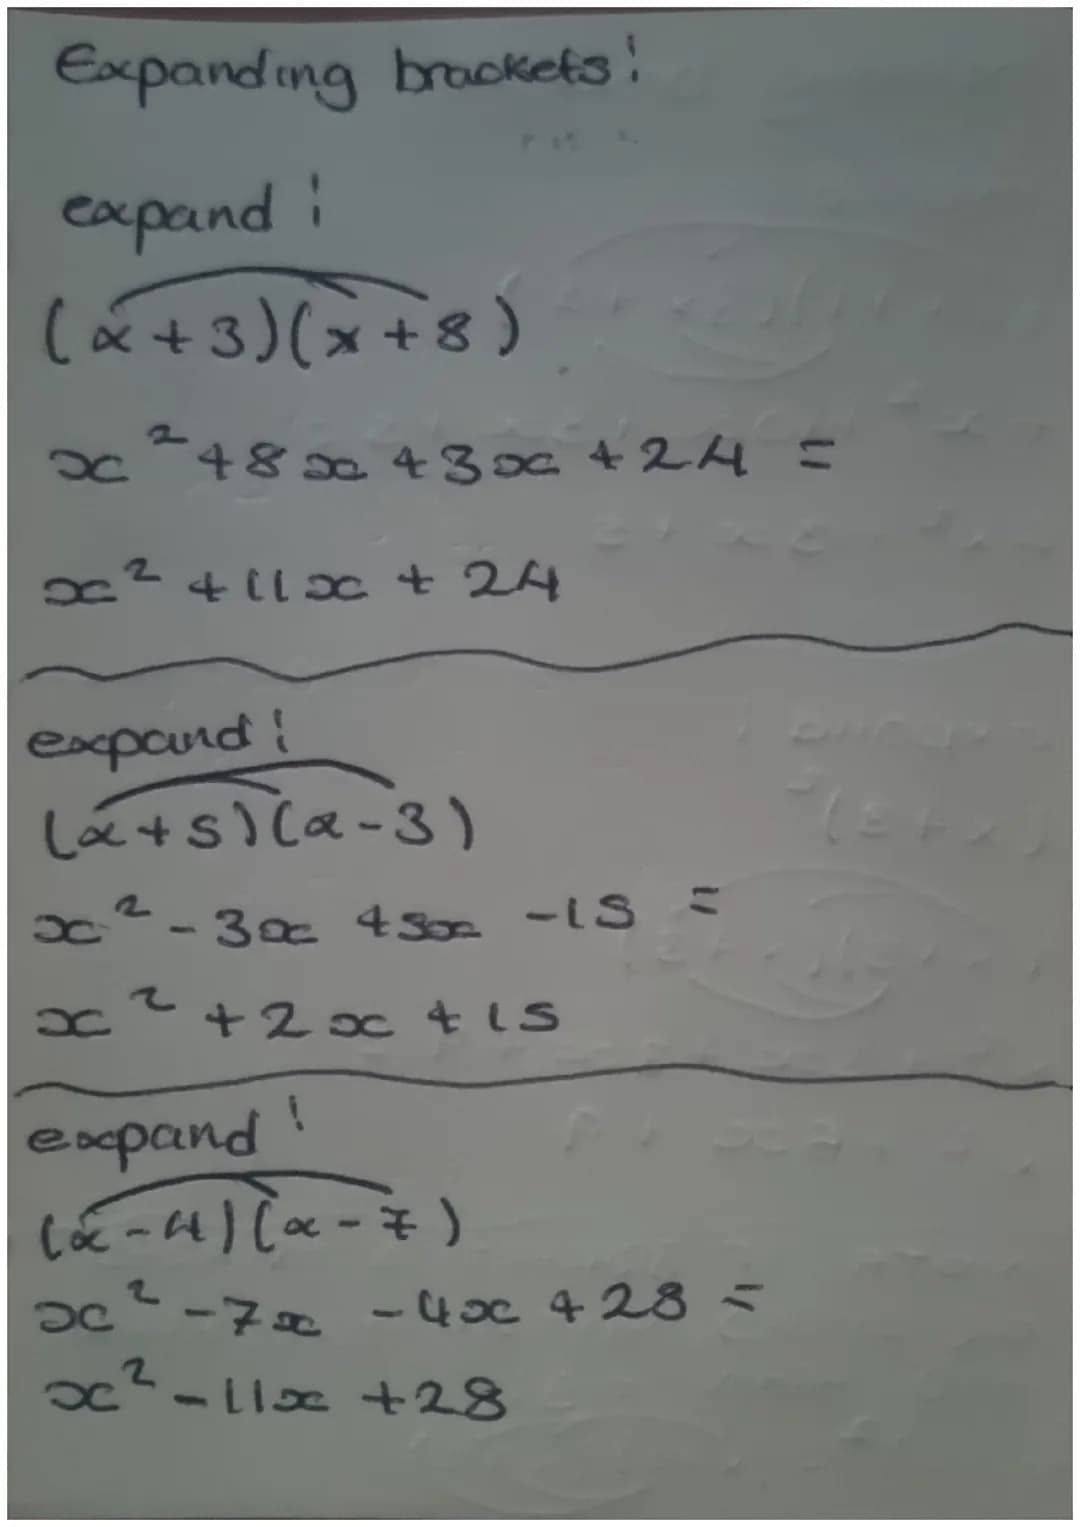 Expanding brackets:
expand:
(x+3)(x+8)
x² +8x +3x +24 =
x² +11x + 24
expand:
(x+5)(x-3)
x² -3x +5x -15 =
x² +2x +15
expand:
(x-4)(x-7)
x² -7x -4x +28 =
x² -11x +28